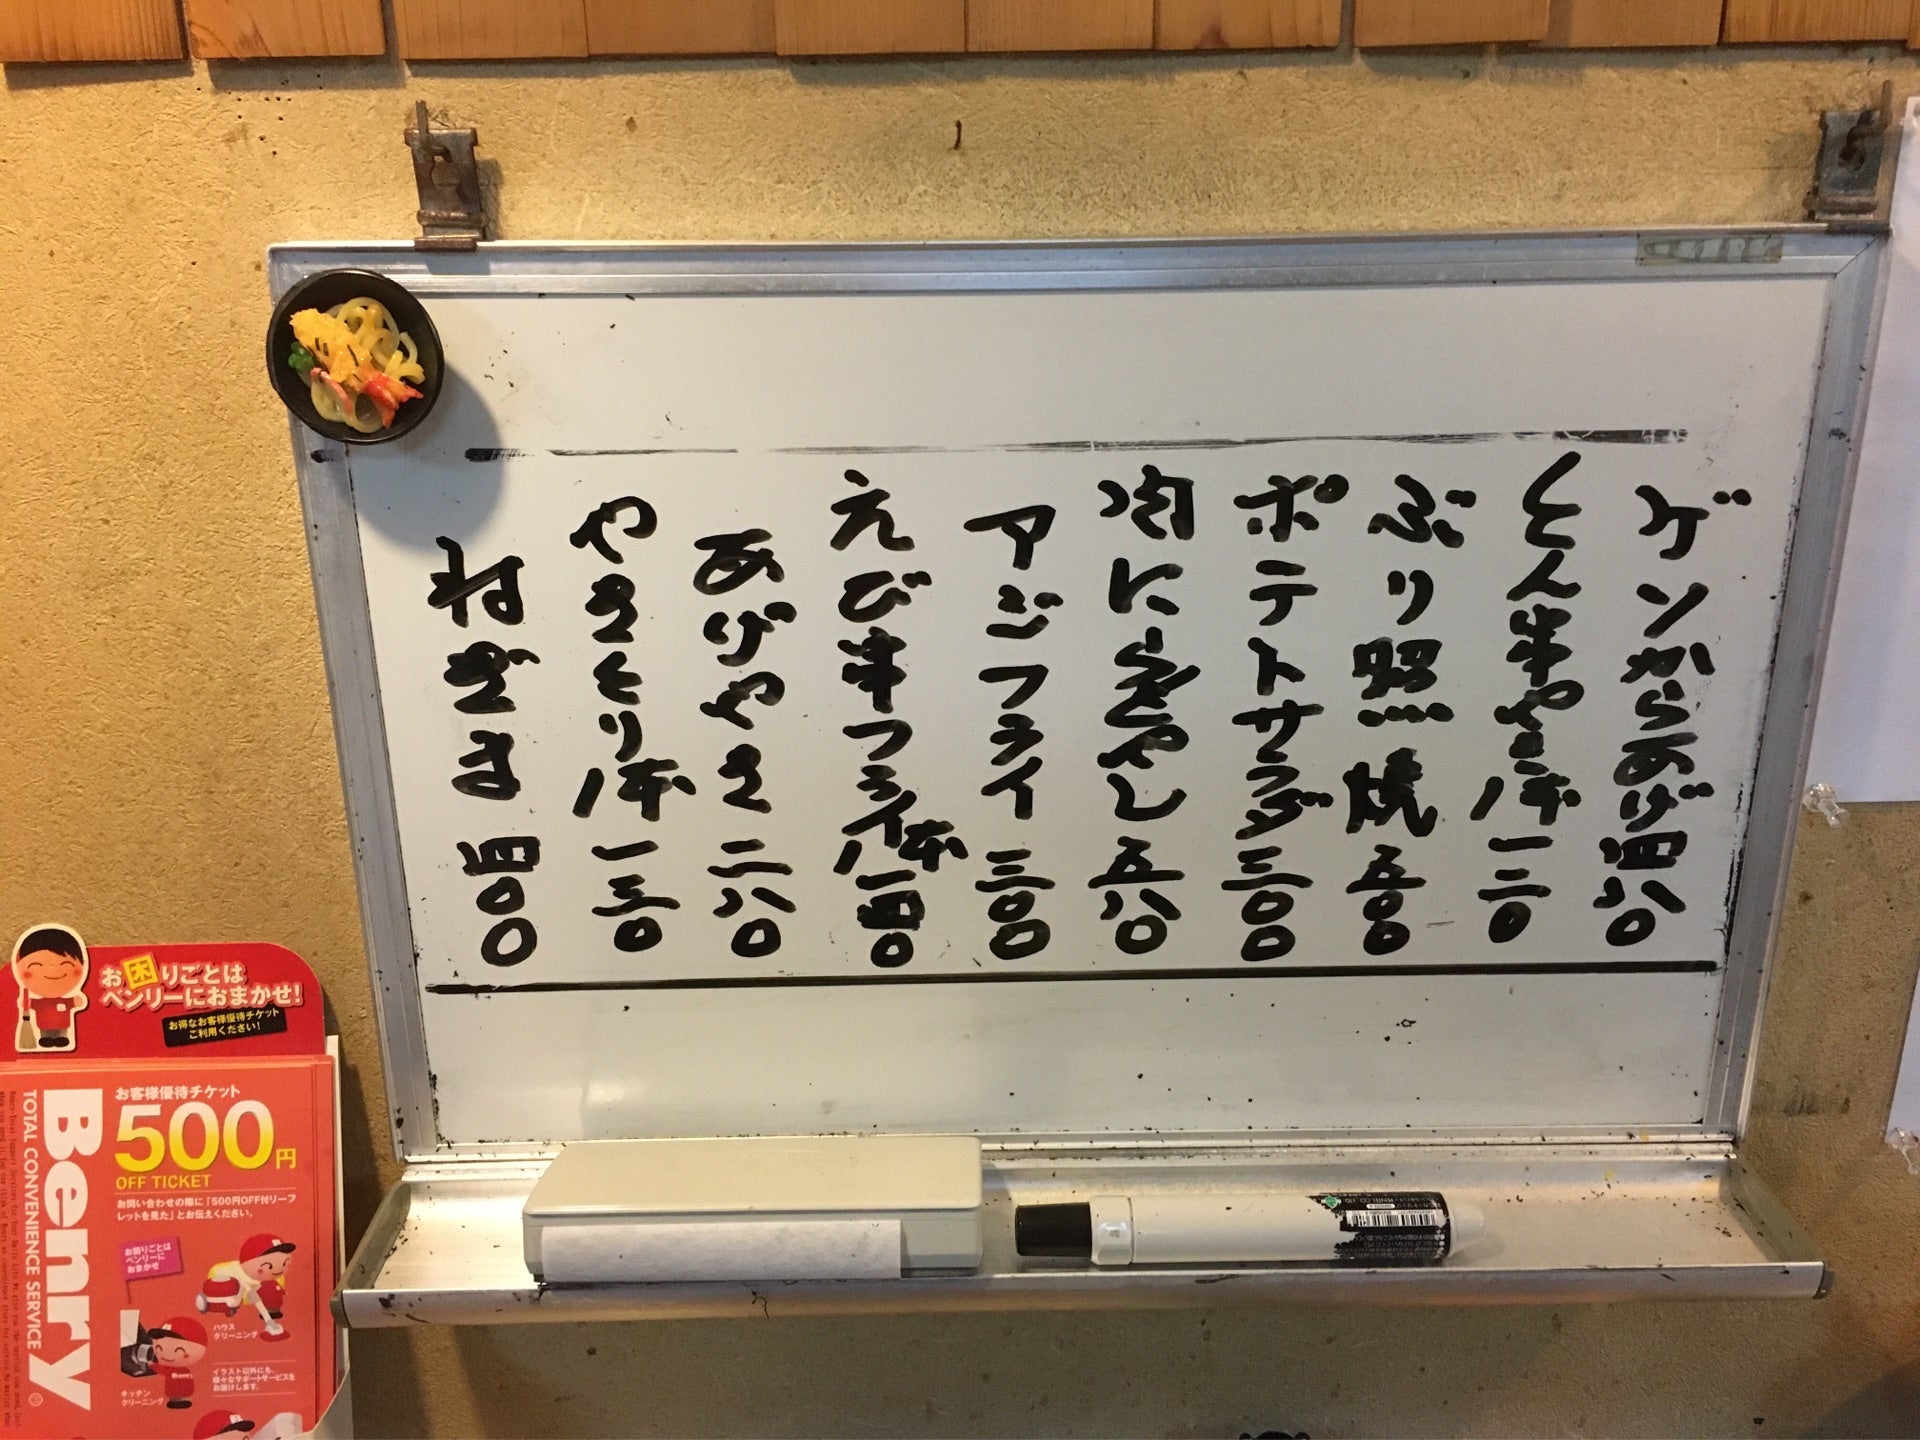 ゲソからあげ 四八〇
とん串やき 一本 一二〇
ぶり照焼 五〇〇
ポテトサラダ 三〇〇
肉にらもやし 五八〇
アジフライ 三〇〇
えび串フライ 一本 一四〇
あげやさい 二八〇
やさくり 一本 一三〇
ねぎま 四〇〇
お困りごとは
ベンリーにおまかせ!
お得なお客様優待チケット
ご利用ください!
お客様優待チケット
500円
OFF TICKET
お問い合わせの際に「500円OFF付リーフ
レットを見た」とお伝えください。
Benry
TOTAL CONVENIENCE SERVICE
お困りごとは
ベンリーに
おまかせ
ハウス
クリーニング
キッチン
クリーニング
イラスト以外にも、
様々なサポートサービスを
お届けします。